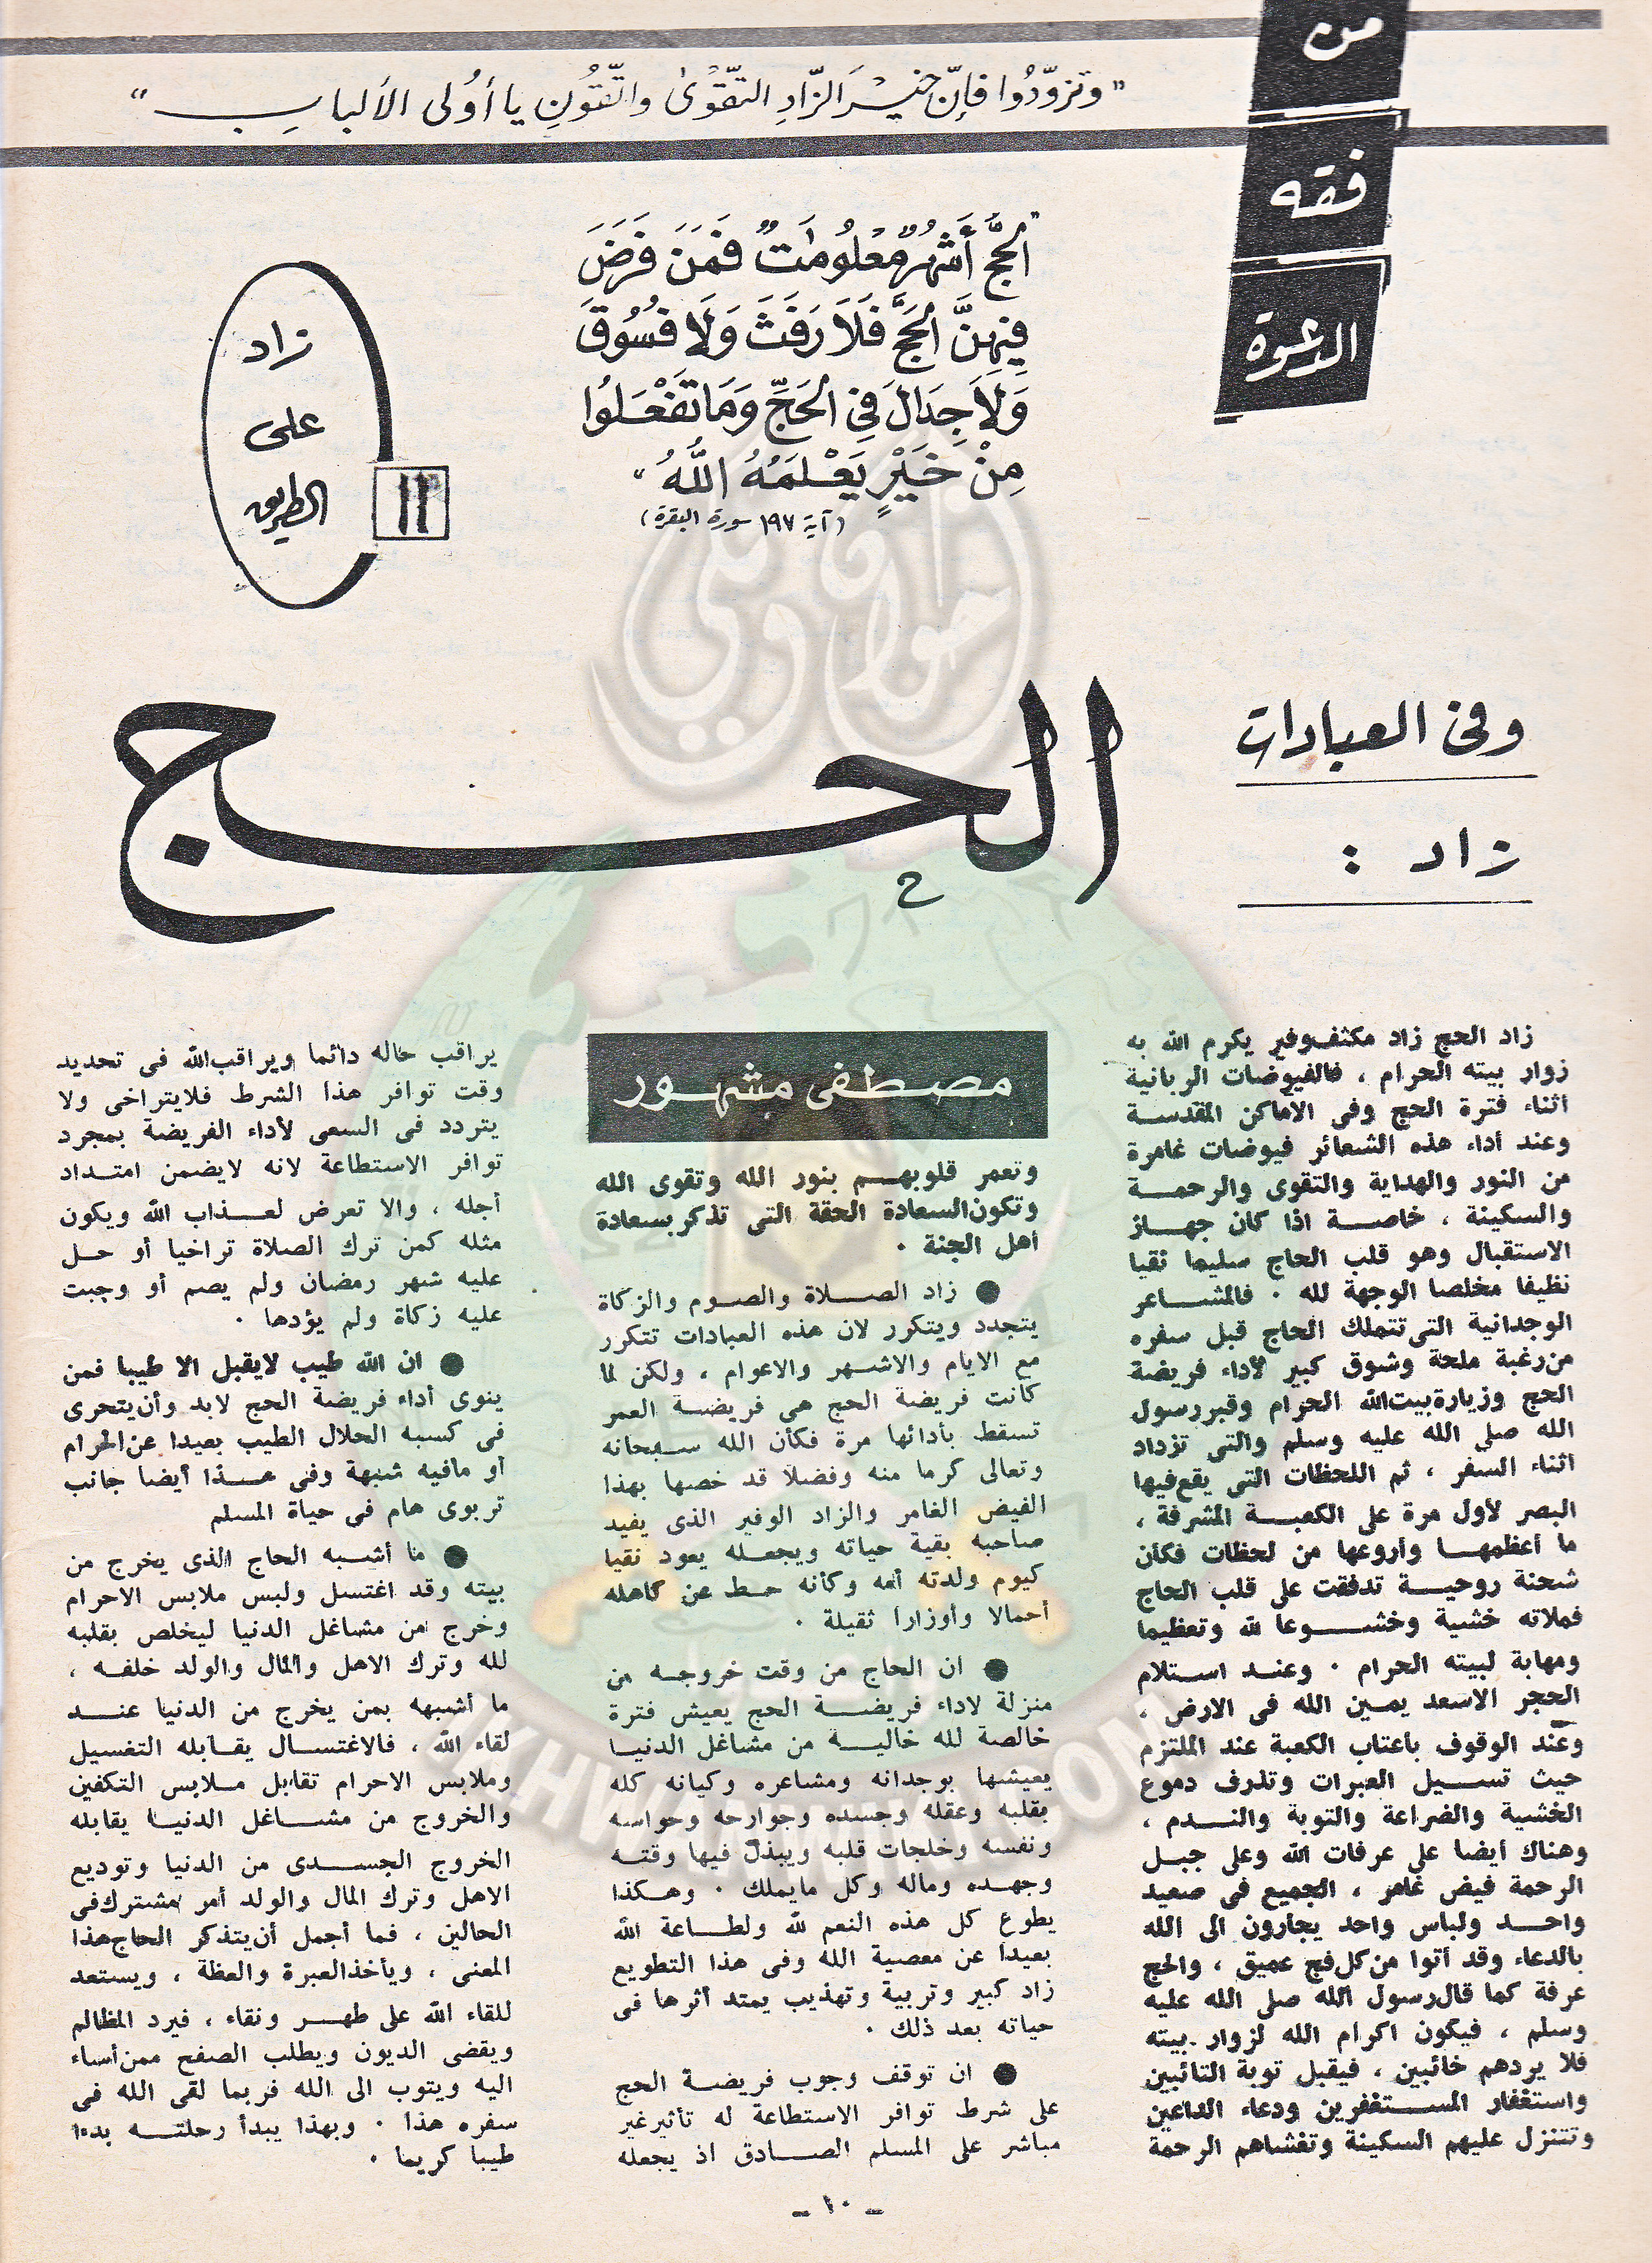 من
فقه
الدعوة
"وتزوّدُوا فإنّ خيرَ الزّادِ التّقْوىٰ واتّقُونِ يا أُولى الألبابِ"
"الحَجُّ أَشْهُرٌ مَّعْلُومَٰتٌ فَمَن فَرَضَ
فِيهِنَّ الحَجَّ فَلَا رَفَثَ وَلَا فُسُوقَ
وَلَا جِدَالَ فِى الحَجِّ وَمَا تَفْعَلُوا
مِنْ خَيْرٍ يَعْلَمْهُ اللَّهُ"
(آية ١٩٧ سورة البقرة)
زاد
على
الطريق
١١
وفى العبادات
زاد :
الحج
زاد الحج زاد مكثف وفير يكرم الله به
زوار بيته الحرام ، فالفيوضات الربانية
أثناء فترة الحج وفى الأماكن المقدسة
وعند أداء هذه الشعائر فيوضات غامرة
من النور والهداية والتقوى والرحمة
والسكينة ، خاصة اذا كان جهاز
الاستقبال وهو قلب الحاج سليما نقيا
نظيفا مخلصا الوجهة لله . فالمشاعر
الوجدانية التى تتملك الحاج قبل سفره
من رغبة ملحة وشوق كبير لأداء فريضة
الحج وزيارة بيت الله الحرام وقبر رسول
الله صلى الله عليه وسلم والتى تزداد
أثناء السفر ، ثم اللحظات التى يقع فيها
البصر لأول مرة على الكعبة المشرفة ،
ما أعظمها وأروعها من لحظات فكأن
شحنة روحية تدفقت على قلب الحاج
فملاته خشية وخشوعا لله وتعظيما
ومهابة لبيته الحرام . وعند استلام
الحجر الاسعد يمين الله فى الارض ،
وعند الوقوف بأعتاب الكعبة عند الملتزم
حيث تسيل العبرات وتذرف دموع
الخشية والضراعة والتوبة والندم ،
وهناك أيضا على عرفات الله وعلى جبل
الرحمة فيض غامر ، الجميع فى صعيد
واحد ولباس واحد يجارون الى الله
بالدعاء وقد أتوا من كل فج عميق ، والحج
عرفة كما قال رسول الله صلى الله عليه
وسلم ، فيكون اكرام الله لزوار بيته
فلا يردهم خائبين ، فيقبل توبة التائبين
واستغفار المستغفرين ودعاء الداعين
وتتنزل عليهم السكينة وتغشاهم الرحمة
مصطفى مشهور
وتعمر قلوبهم بنور الله وتقوى الله
وتكون السعادة الحقة التى تذكر بسعادة
أهل الجنة .
● زاد الصلاة والصوم والزكاة
يتجدد ويتكرر لان هذه العبادات تتكرر
مع الايام والاشهر والاعوام ، ولكن لما
كانت فريضة الحج هى فريضة العمر
تسقط بأدائها مرة فكأن الله سبحانه
وتعالى كرما منه وفضلا قد خصها بهذا
الفيض الغامر والزاد الوفير الذى يفيد
صاحبه بقية حياته ويجعله يعود نقيا
كيوم ولدته أمه وكأنه حط عن كاهله
أحمالا وأوزارا ثقيلة .
● ان الحاج من وقت خروجه من
منزلة لاداء فريضة الحج يعيش فترة
خالصة لله خالية من مشاغل الدنيا
يعيشها بوجدانه ومشاعره وكيانه كله
بقلبه وعقله وجسده وجوارحه وحواسه
ونفسه وخلجات قلبه ويبذل فيها وقته
وجهده وماله وكل مايملك . وهكذا
يطوع كل هذه النعم لله ولطاعة الله
بعيدا عن معصية الله وفى هذا التطويع
زاد كبير وتربية وتهذيب يمتد أثرها فى
حياته بعد ذلك .
● ان توقف وجوب فريضة الحج
على شرط توافر الاستطاعة له تأثير غير
مباشر على المسلم الصادق اذ يجعله
يراقب حاله دائما ويراقب الله فى تحديد
وقت توافر هذا الشرط فلا يتراخى ولا
يتردد فى السعى لأداء الفريضة بمجرد
توافر الاستطاعة لانه لايضمن امتداد
أجله ، والا تعرض لعذاب الله ويكون
مثله كمن ترك الصلاة تراخيا أو حل
عليه شهر رمضان ولم يصم أو وجبت
عليه زكاة ولم يؤدها .
● ان الله طيب لايقبل الا طيبا فمن
ينوى أداء فريضة الحج لابد وأن يتحرى
فى كسبه الحلال الطيب بعيدا عن الحرام
أو مافيه شبهة وفى هذا أيضا جانب
تربوى هام فى حياة المسلم
● ما أشبه الحاج الذى يخرج من
بيته وقد اغتسل ولبس ملابس الاحرام
وخرج من مشاغل الدنيا ليخلص بقلبه
لله وترك الاهل والمال والولد خلفه ،
ما أشبهه بمن يخرج من الدنيا عند
لقاء الله ، فالاغتسال يقابله التغسيل
وملابس الاحرام تقابل ملابس التكفين
والخروج من مشاغل الدنيا يقابله
الخروج الجسدى من الدنيا وتوديع
الاهل وترك المال والولد أمر مشترك فى
الحالين ، فما أجمل أن يتذكر الحاج هذا
المعنى ، ويأخذ العبرة والعظة ، ويستعد
للقاء الله على طهر ونقاء ، فيرد المظالم
ويقضى الديون ويطلب الصفح ممن أساء
اليه ويتوب الى الله فربما لقى الله فى
سفره هذا . وبهذا يبدأ رحلته بدءا
طيبا كريما .
- ١٠ -